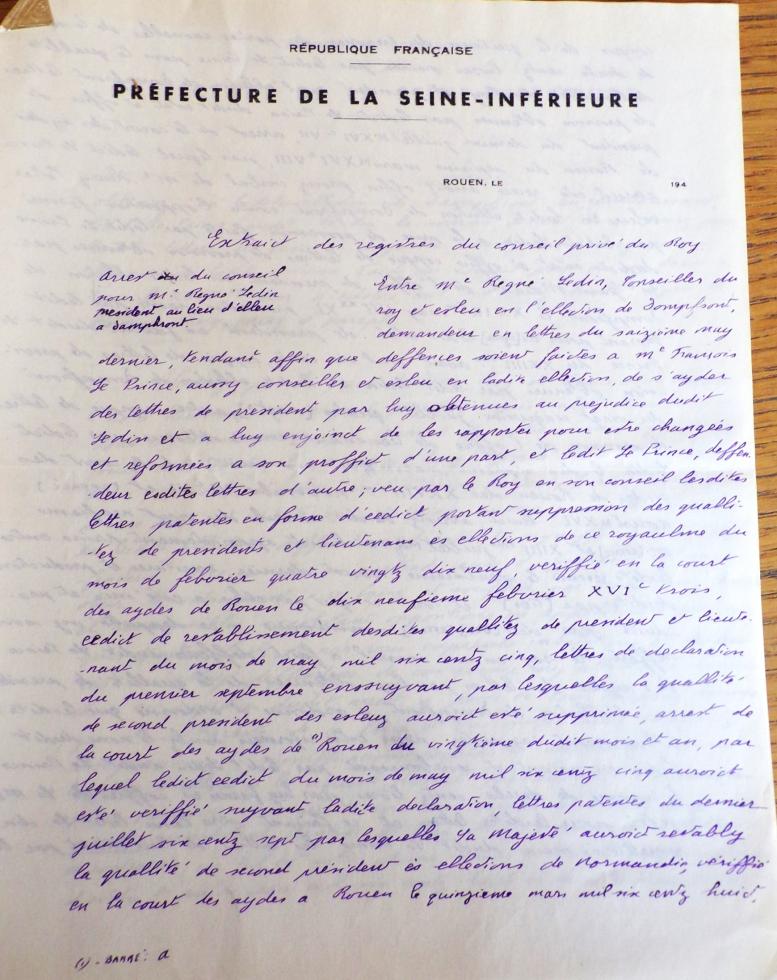 RÉPUBLIQUE FRANÇAISE
PRÉFECTURE DE LA SEINE-INFÉRIEURE
ROUEN, LE 194
Extraict des registres du conseil privé du Roy
Arrest du conseil
pour me Regné Ledin
president au lieu d'esleu
a Dampfront
Entre Me Regné Ledin, Conseiller du
roy et esleu en l'ellection de Dompfront,
demandeur en lettres du saizième may
dernier, tendant affin que deffences soient faictes a me François
Le Prince, aussy conseiller et esleu en ladite ellection, de s'ayder
des lettres de president par luy obtenues au prejudice dudit
Ledin et a luy enjoinct de les rapporter pour etre changées
et reformées a son proffict d'une part, et ledit Le Prince, deffen-
deur esdites lettres d'autre; veu par le Roy en son conseil lesdites
lettres patentes en forme d'eedict portant suppression des qualli-
-tez de presidents et lieutenans es ellections de ce royaulme du
mois de febvrier quatre vingtz dix neuf, veriffié en la court
des aydes de Rouen le dix neufieme febvrier XVIc trois,
eedict de restablissement desdites quallitez de president et lieute-
-nant du mois de may mil six centz cinq, lettres de declaration
du premier septembre ensuyvant, par lesquelles la quallité
de second president des esleuz auroict esté supprimée, arrest de
la court des aydes de (1) Rouen du vingtième dudit mois et an, par
lequel ledict eedict du mois de may mil six centz cinq auroict
esté veriffié suyvant ladite declaration, lettres patentes du dernier
juillet six centz sept par lesquelles Sa Majesté auroict restably
la quallité de second président ès ellections de Normandie, vériffié
en la court des aydes a Rouen le quinzieme mars mil six centz huict,
(1) - BARRÉ: a